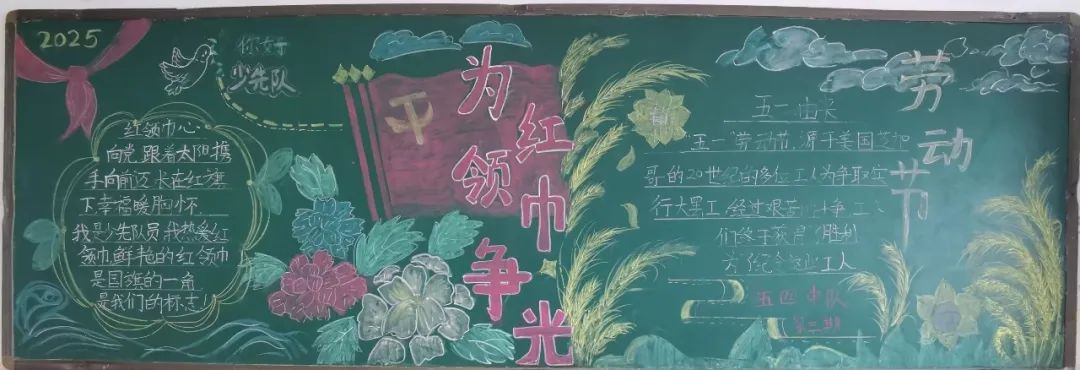 2025
你好
少先队
红领巾心
向党跟着太阳携
手向前迈长在红旗
下幸福暖胸怀
我是少先队员我热爱红
领巾鲜艳的红领巾
是国旗的一角
是我们的标志！
为红领巾争光
劳动节
五一由来
"五一"劳动节，源于美国芝加
哥的20世纪的多位工人为争取实
行大罢工，经过艰苦
们终于获得胜利
为纪念这些工人
五四中队
第二期